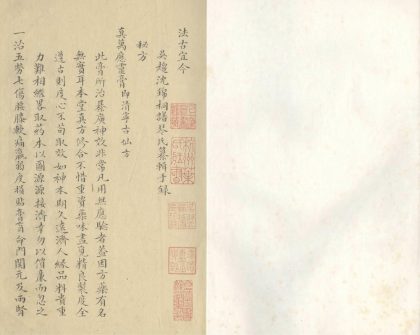 法古宜今
吳趨沈錦桐譜琴氏纂輯手錄
秘方
真萬應靈膏 即清寧古仙方
此膏所治纂廣神效非常凡用無應驗者蓋因方藥有名
無實耳本堂真方修合不惜重資藥味盡覓精良製度全
遵古則度心不苟取效如神本期久遠濟人緣品料貴重
力難相繼畧取藥本以圖源源接濟幸勿以價廉而忽之
一治五勞七傷腰膝軟痛羸弱虛損貼膏肓命門關元及兩腎